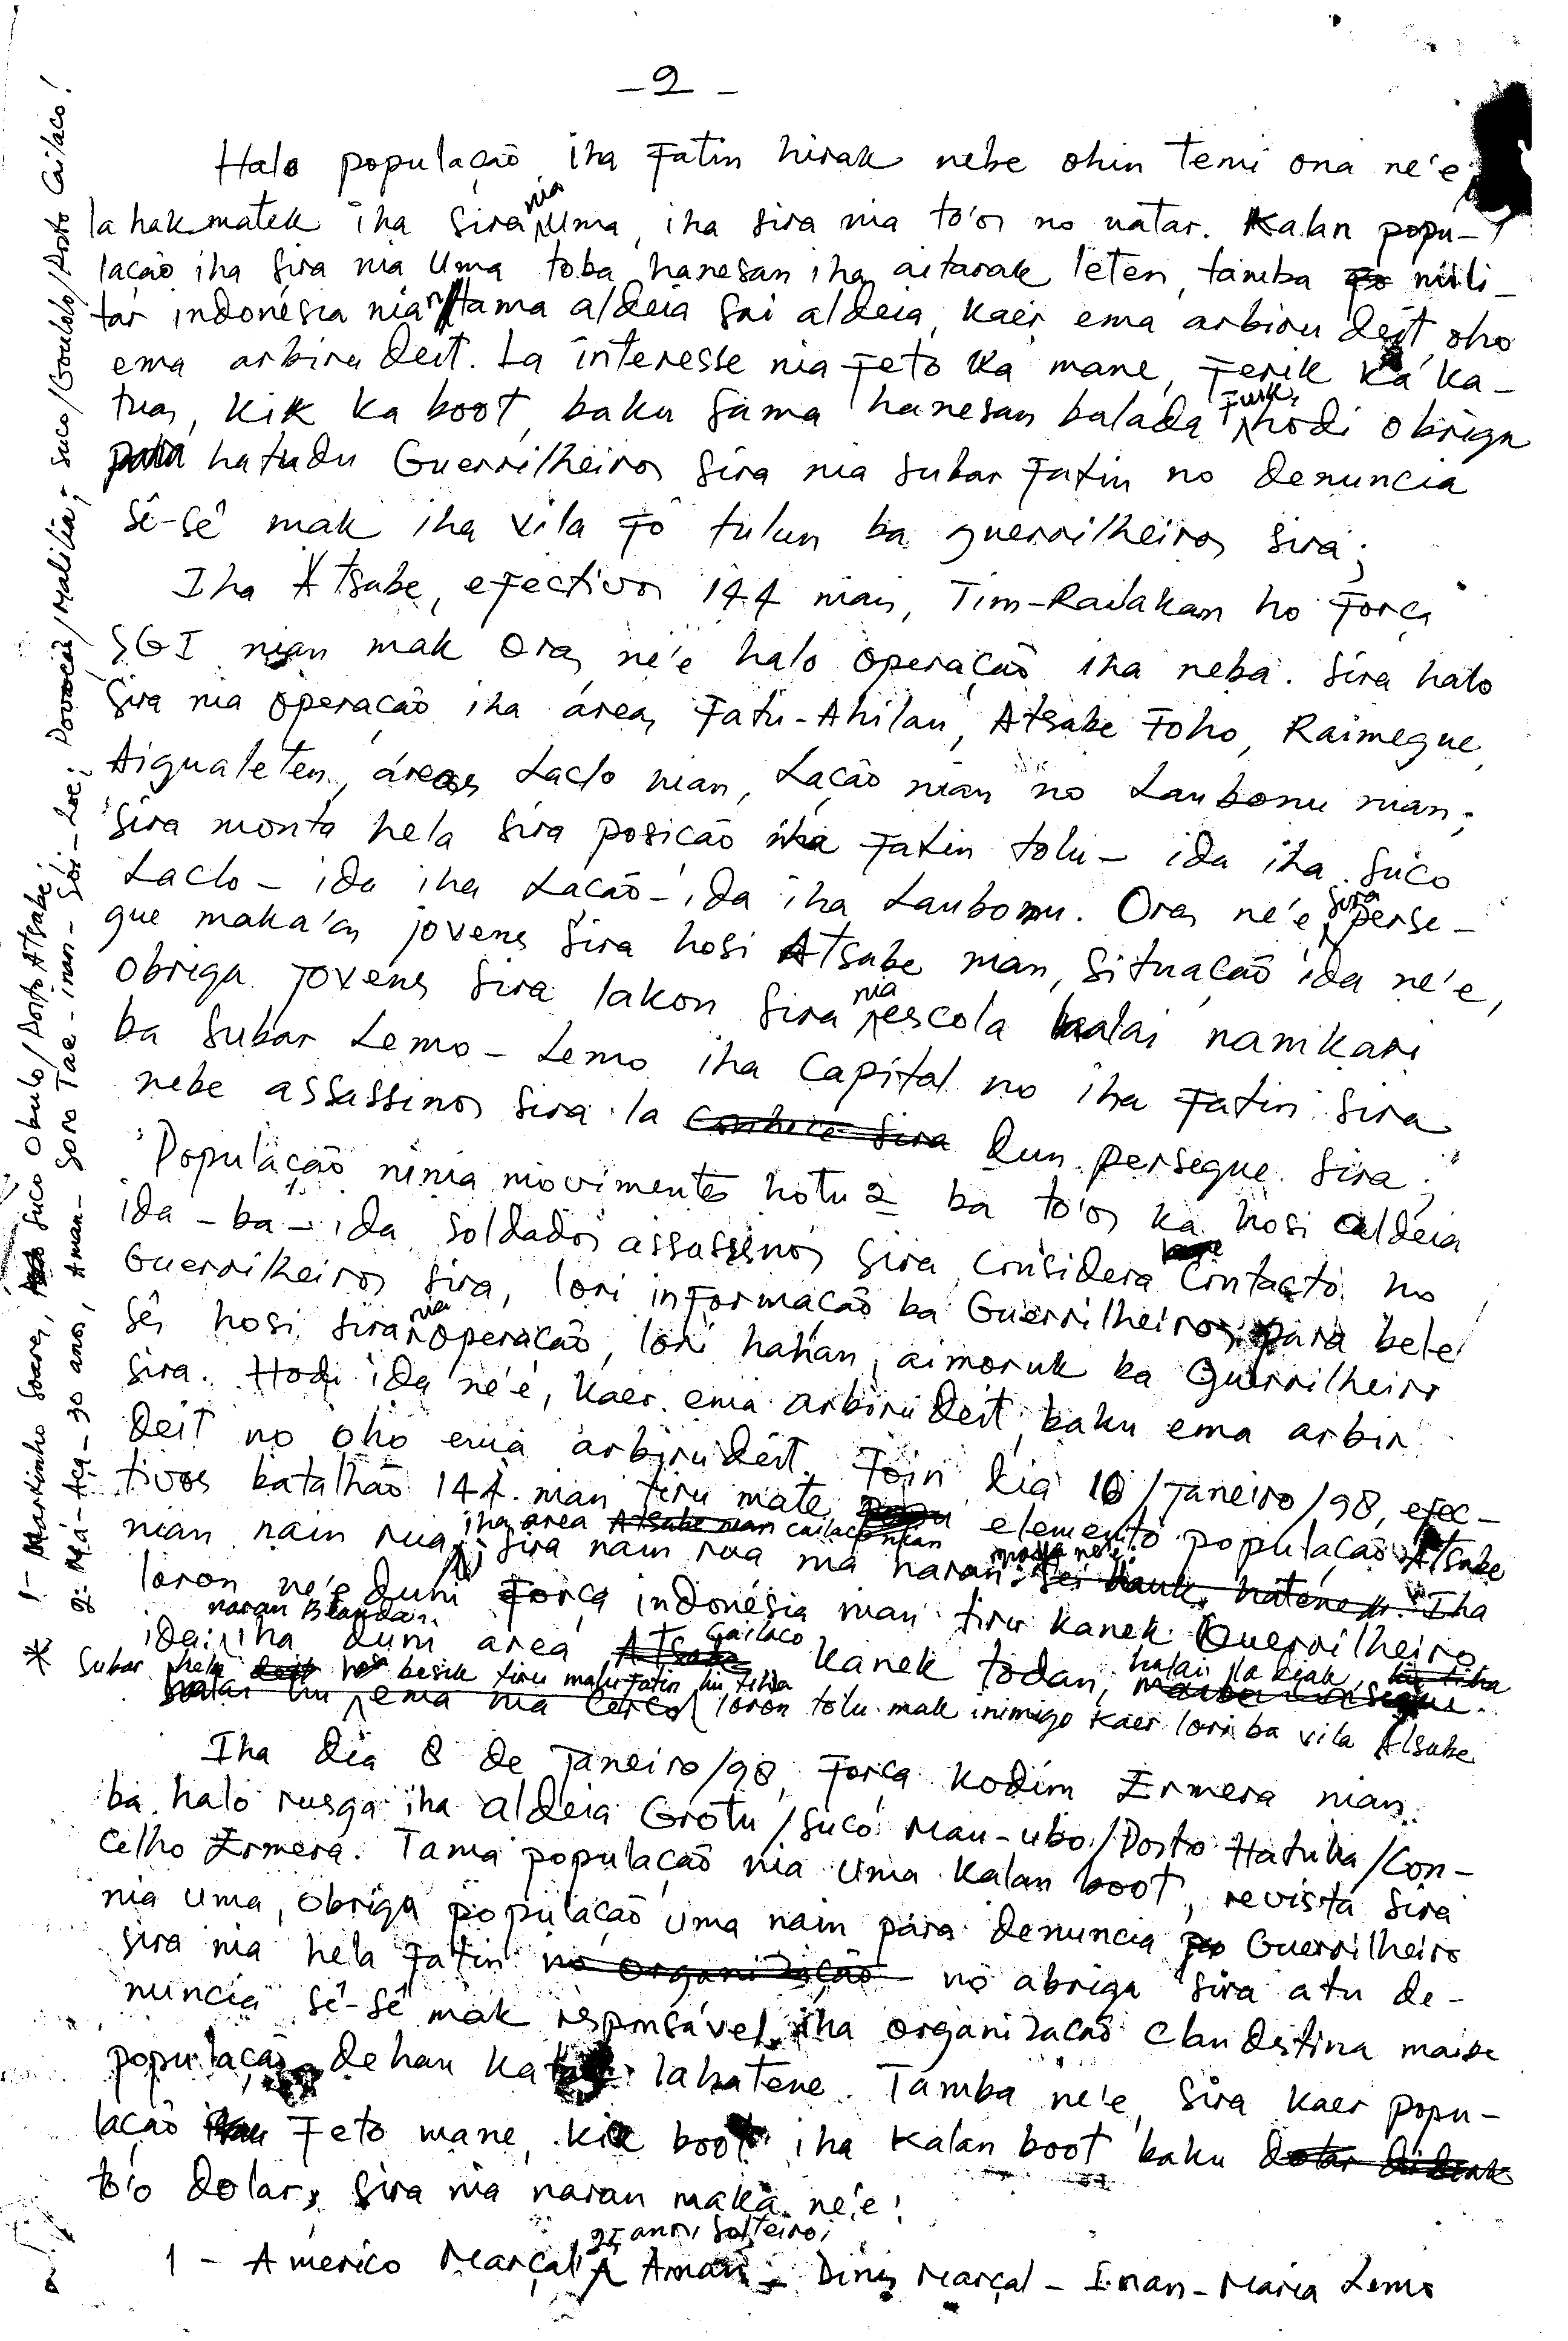 -2-
Halo população iha Fatin hirak nebe ohin temi ona ne'e,
la hakmatek iha sira nia Uma, iha sira nia to'os no natar. Kalan popu-
lação iha sira nia Uma toba hanesan iha aitarak leten, tamba mili-
tar indonésia nian tama aldeia sai aldeia, kaer ema arbiru deit, oho
ema arbiru deit. La interesse nia Feto ka mane, Ferik ka ka-
tuas, kik ka boot, baku sama hanesan balada Fuik, hodi obriga
para hatudu Guerrilheiros sira nia subar Fatin no denuncia
sê-sê mak iha vila Fô tulun ba guerrilheiros sira;
Iha Atsabe, efectivos 144 nian, Tim-Railakan ho Força
SGI nian mak oras ne'e halo operação iha neba. Sira halo
sira nia operação iha áreas Fatu-Ahilau, Atsabe Foho, Raimegue,
Aigualeten, áreas Laclo nian, Lação nian no Laubonu nian;
sira monta hela sira posição iha Fatin tolu - ida iha suco
Laclo - ida iha Lacão - ida iha Laubonu. Oras ne'e sira perse-
gue maka'as jovens sira hosi Atsabe nian, situação ida ne'e,
obriga jovens sira lakon sira nia escola halai namkari
ba subar Lemo-Lemo iha Capital no iha Fatin sira
nebe assassinos sira la ~~conhece sira~~ dun persegue sira;
População ninia movimentos hotu2 ba to'os ka hosi aldeia
ida-ba-ida soldados assassinos sira considera contacto ho
Guerrilheiros sira, lori informação ba Guerrilheiros para bele
sês hosi sira nia operação, lori hahán, aimoruk ba Guerrilheiro
sira. Hodi ida ne'e, kaer ema arbiru deit, baku ema arbir
deit no oho ema arbiru deit. Foin dia 10/Janeiro/98, efec-
tivos batalhão 144 nian tiru mate elemento população Atsabe
nian nain rua, iha area ~~Atsabe nian~~ Cailaco nian sira nain rua nia naran ne'e: ~~sei hauk hatene~~. Iha
loron ne'e duni Força indonésia nian tiru kanek Guerrilheiro
ida, naran Blanda iha duni area ~~Atsabe~~ Cailaco kanek todan, halai la diak,
subar hela besik tiru malu Fatin loron tolu mak inimigo kaer lori ba vila Atsabe
Iha dia 8 de Janeiro/98, Força Kodim Ermera nian
ba halo rusga iha aldeia Grotu/Suco Mau-ubo/Posto Hatulia/Con-
celho Ermera. Tama população nia uma kalan boot, revista sira
nia uma, obriga população uma nain para denuncia Guerrilheiro
sira nia hela Fatin ~~no organização~~ no abriga sira atu de-
nuncia sê-sê mak responsável iha organização clandestina maibe
população dehan katak lahatene. Tamba ne'e, sira kaer popu-
lação Feto mane, kik boot iha kalan boot baku ~~dolar didiak~~
to'o dolar, sira nia naran maka ne'e:
1 - Américo Marçal, 25 anos, solteiro; Aman - Dinis Marçal - Inan - Maria Lemo
* 1- Martinho Soares, suco Obulo/Posto Atsabe;
2: Má-Aça - 30 anos, Aman - Goro Tae - inan - Soi-Loe; Povoação/Malilia; suco/Goulolo/Posto Cailaco!